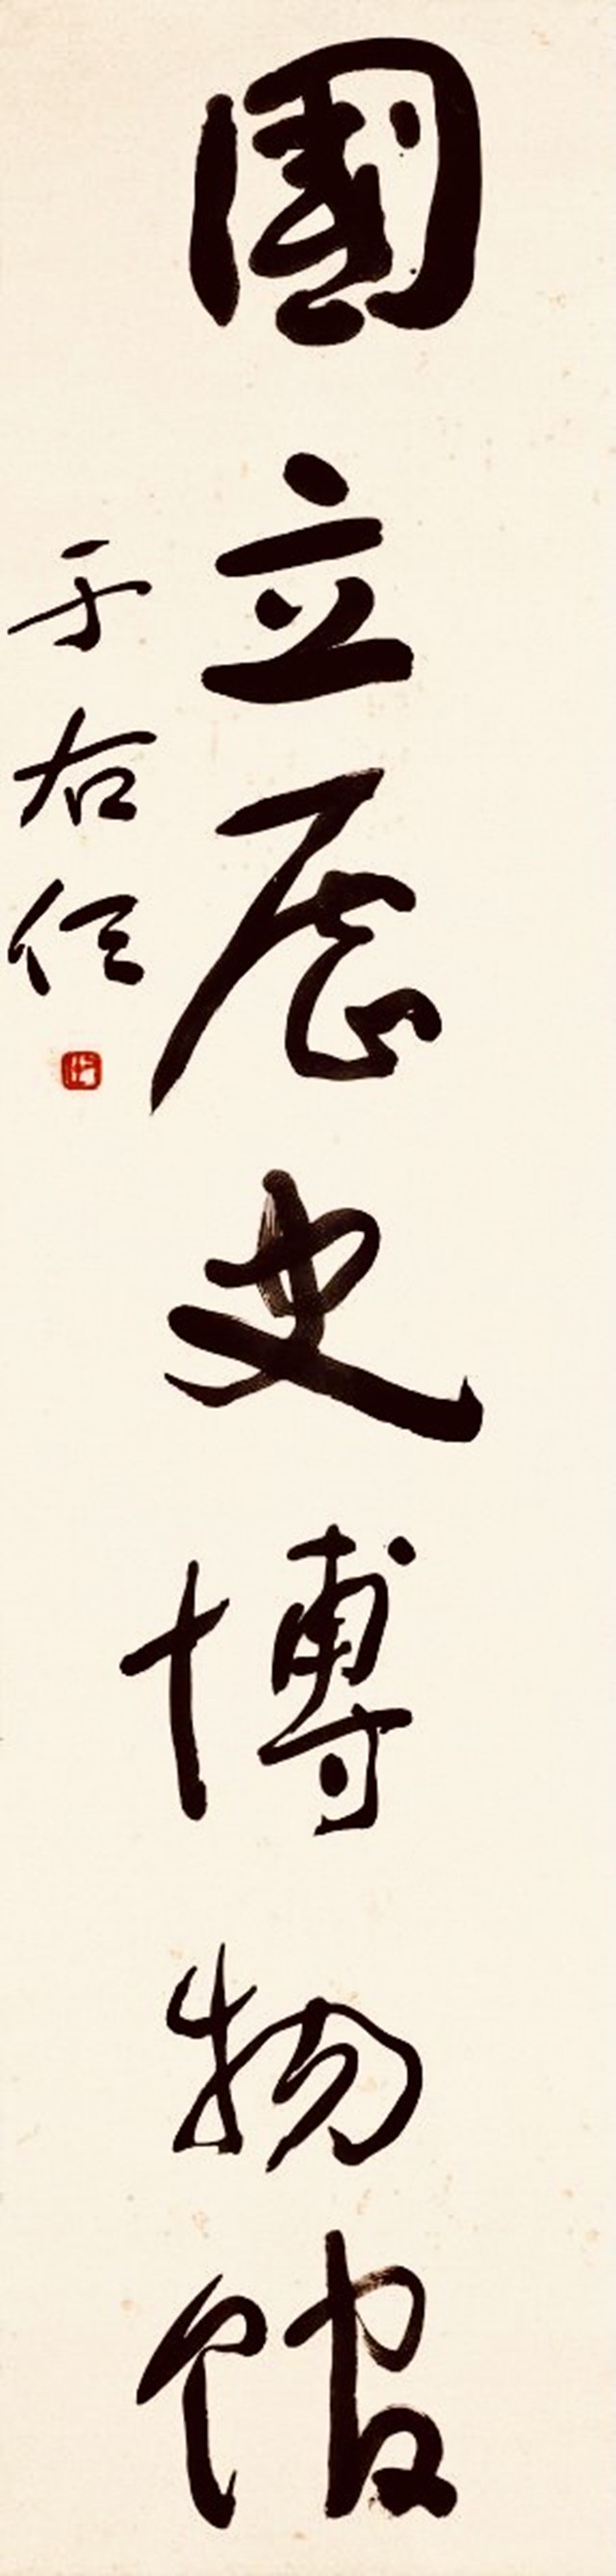 國立歷史博物館
于右任